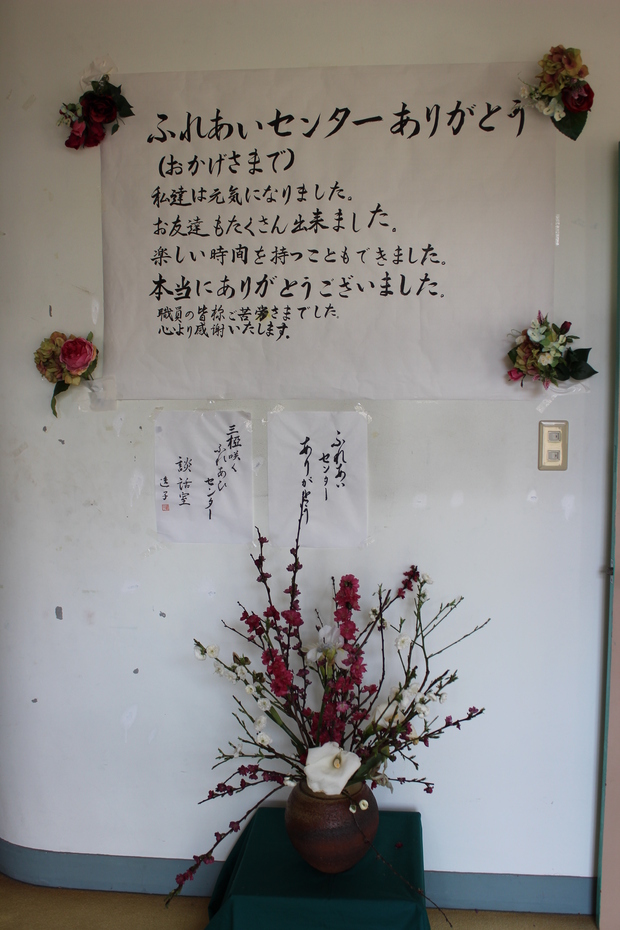 ふれあいセンターありがとう
(おかげさまで)
私達は元気になりました。
お友達もたくさん出来ました。
楽しい時間を持つこともできました。
本当にありがとうございました。
職員の皆様ご苦労さまでした。
心より感謝いたします。
ふれあい
センター
ありがとう
三椏咲く
ふれあひ
センター
談話室